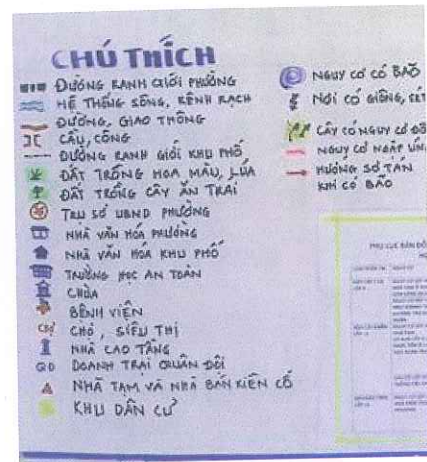 CHÚ THÍCH
ĐƯỜNG RANH GIỚI PHƯỜNG
HỆ THỐNG SÔNG, KÊNH RẠCH
ĐƯỜNG, GIAO THÔNG
CẦU, CỐNG
ĐƯỜNG RANH GIỚI KHU PHỐ
ĐẤT TRỒNG HOA MÀU, LÚA
ĐẤT TRỒNG CÂY ĂN TRÁI
TRỤ SỞ UBND PHƯỜNG
NHÀ VĂN HÓA PHƯỜNG
NHÀ VĂN HÓA KHU PHỐ
TRƯỜNG HỌC AN TOÀN
CHÙA
BỆNH VIỆN
CHỢ CHỢ, SIÊU THỊ
NHÀ CAO TẦNG
QĐ DOANH TRẠI QUÂN ĐỘI
NHÀ TẠM VÀ NHÀ BÁN KIÊN CỐ
KHU DÂN CƯ
NGUY CƠ CÓ BÃO
NƠI CÓ GIÔNG, SÉT
CÂY CÓ NGUY CƠ ĐỔ
NGUY CƠ NGẬP
HƯỚNG SƠ TÁN
KHI CÓ BÃO
PHỤ LỤC BẢN ĐỒ